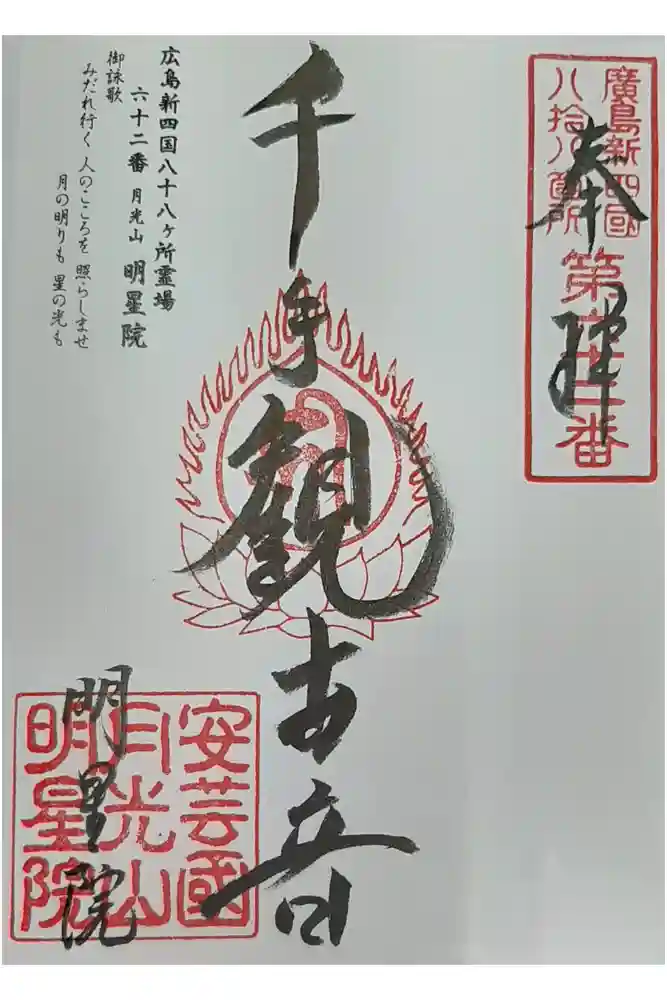 奉拝
廣島新四國
八拾八箇所
第六十二番
千手観世音
明星院
安芸國
月光山
明星院
広島新四国八十八ヶ所霊場
六十二番 月光山 明星院
御詠歌
みだれ行く 人のこころを 照らしませ
月の明りも 星の光も